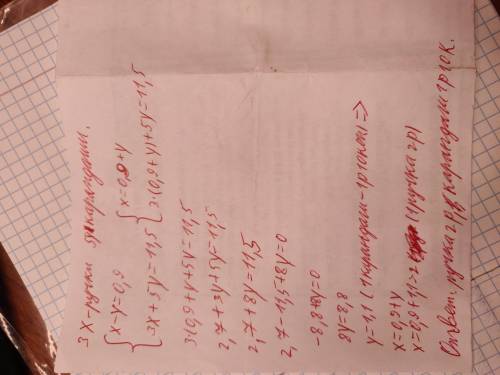 3 x - ручки 5 y карандаши.
{ x - y = 0,9 { x = 0,9 + y
3x + 5y = 11,5 { 3(0,9 + y) + 5y = 11,5
3(0,9 + y) + 5y = 11,5
2,7 + 3y + 5y = 11,5
2,7 + 8y = 11,5
2,7 - 11,5 + 8y = 0
- 8,8 + 8y = 0
8y = 8,8
y = 1,1 (карандаши - 1гр 10коп) =>
x = 0,9 + y
x = 0,9 + 1,1 = 2 (ручка 2гр)
Ответ: ручка 2гр, карандаш 1гр 10к.